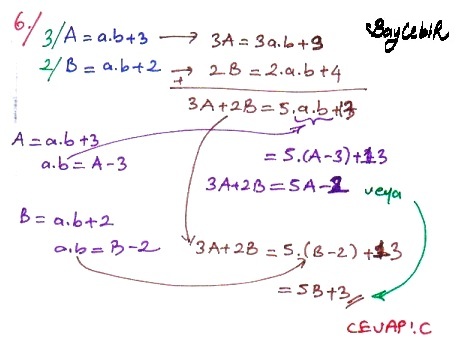 6./ 3/ A = a.b+3 → 3A = 3a.b+9
BayCebiR
2/ B = a.b+2 → 2B = 2.a.b+4
+
3A+2B = 5.a.b+13
A = a.b+3
a.b = A-3
= 5.(A-3)+13
3A+2B = 5A-2 veya
B = a.b+2
a.b = B-2
3A+2B = 5.(B-2)+13
= 5B+3
CEVAP:C